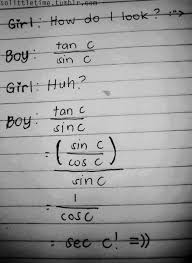 solittletime.tumblr.com
Girl : How do I look? :">
Boy : tan C
sin C
Girl : Huh?
Boy : tan C
sin C
= ( sin C
cos C )
sin C
= 1
cos C
= sec C! =))